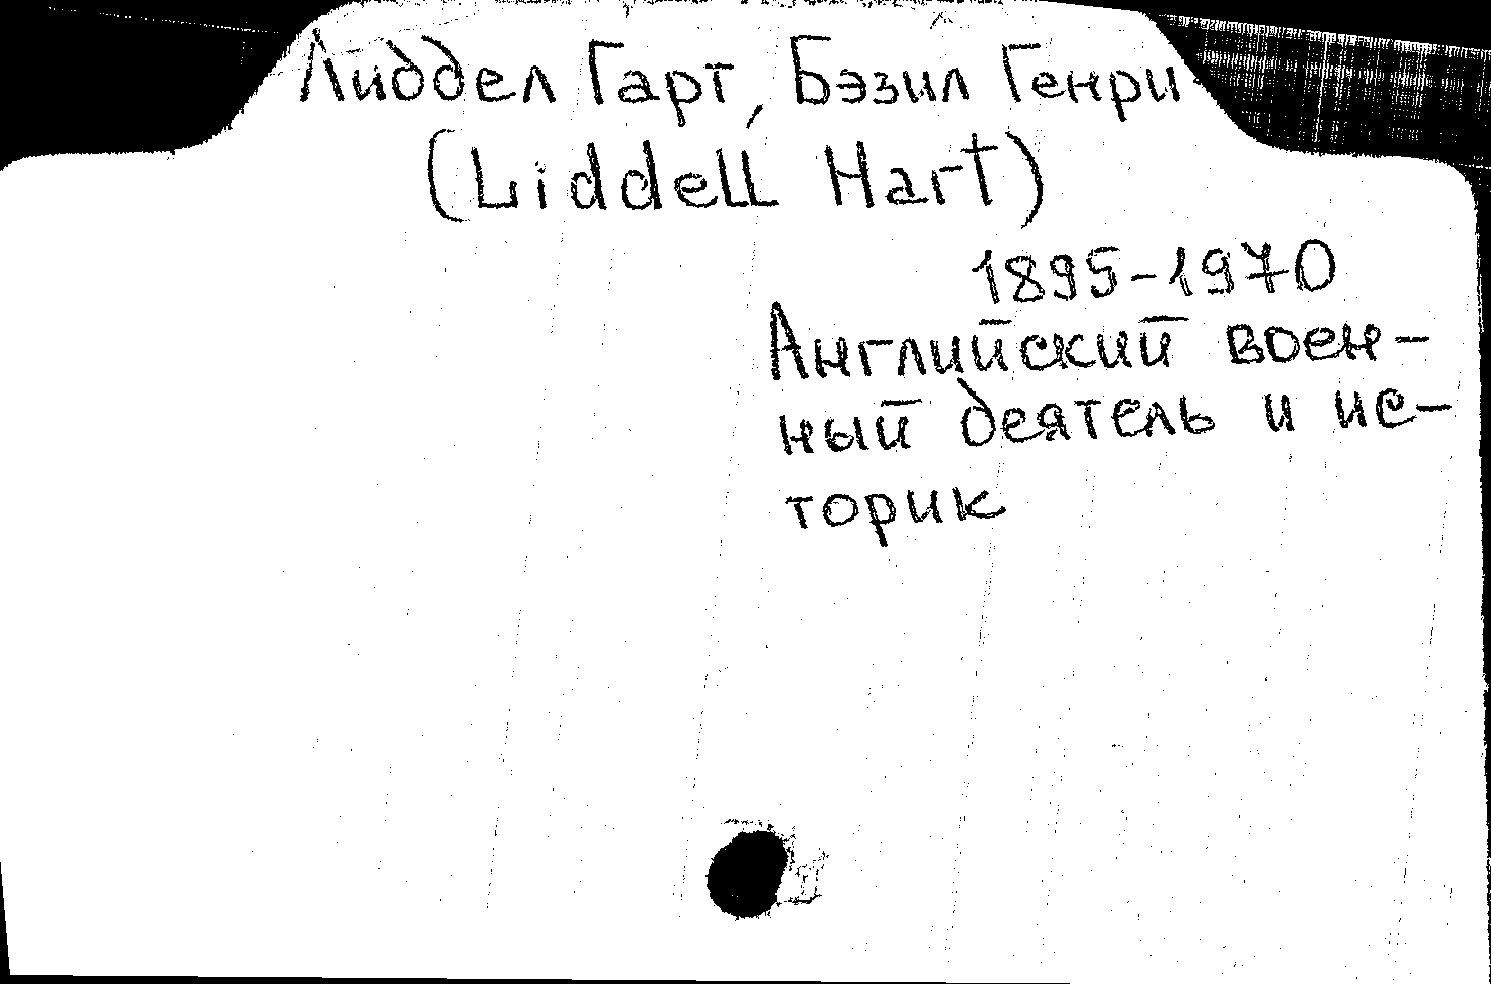 Лиддел Гарт, Бэзил Генри
(Liddell Hart)
1895-1970
Английский воен-
ный деятель и ис-
торик